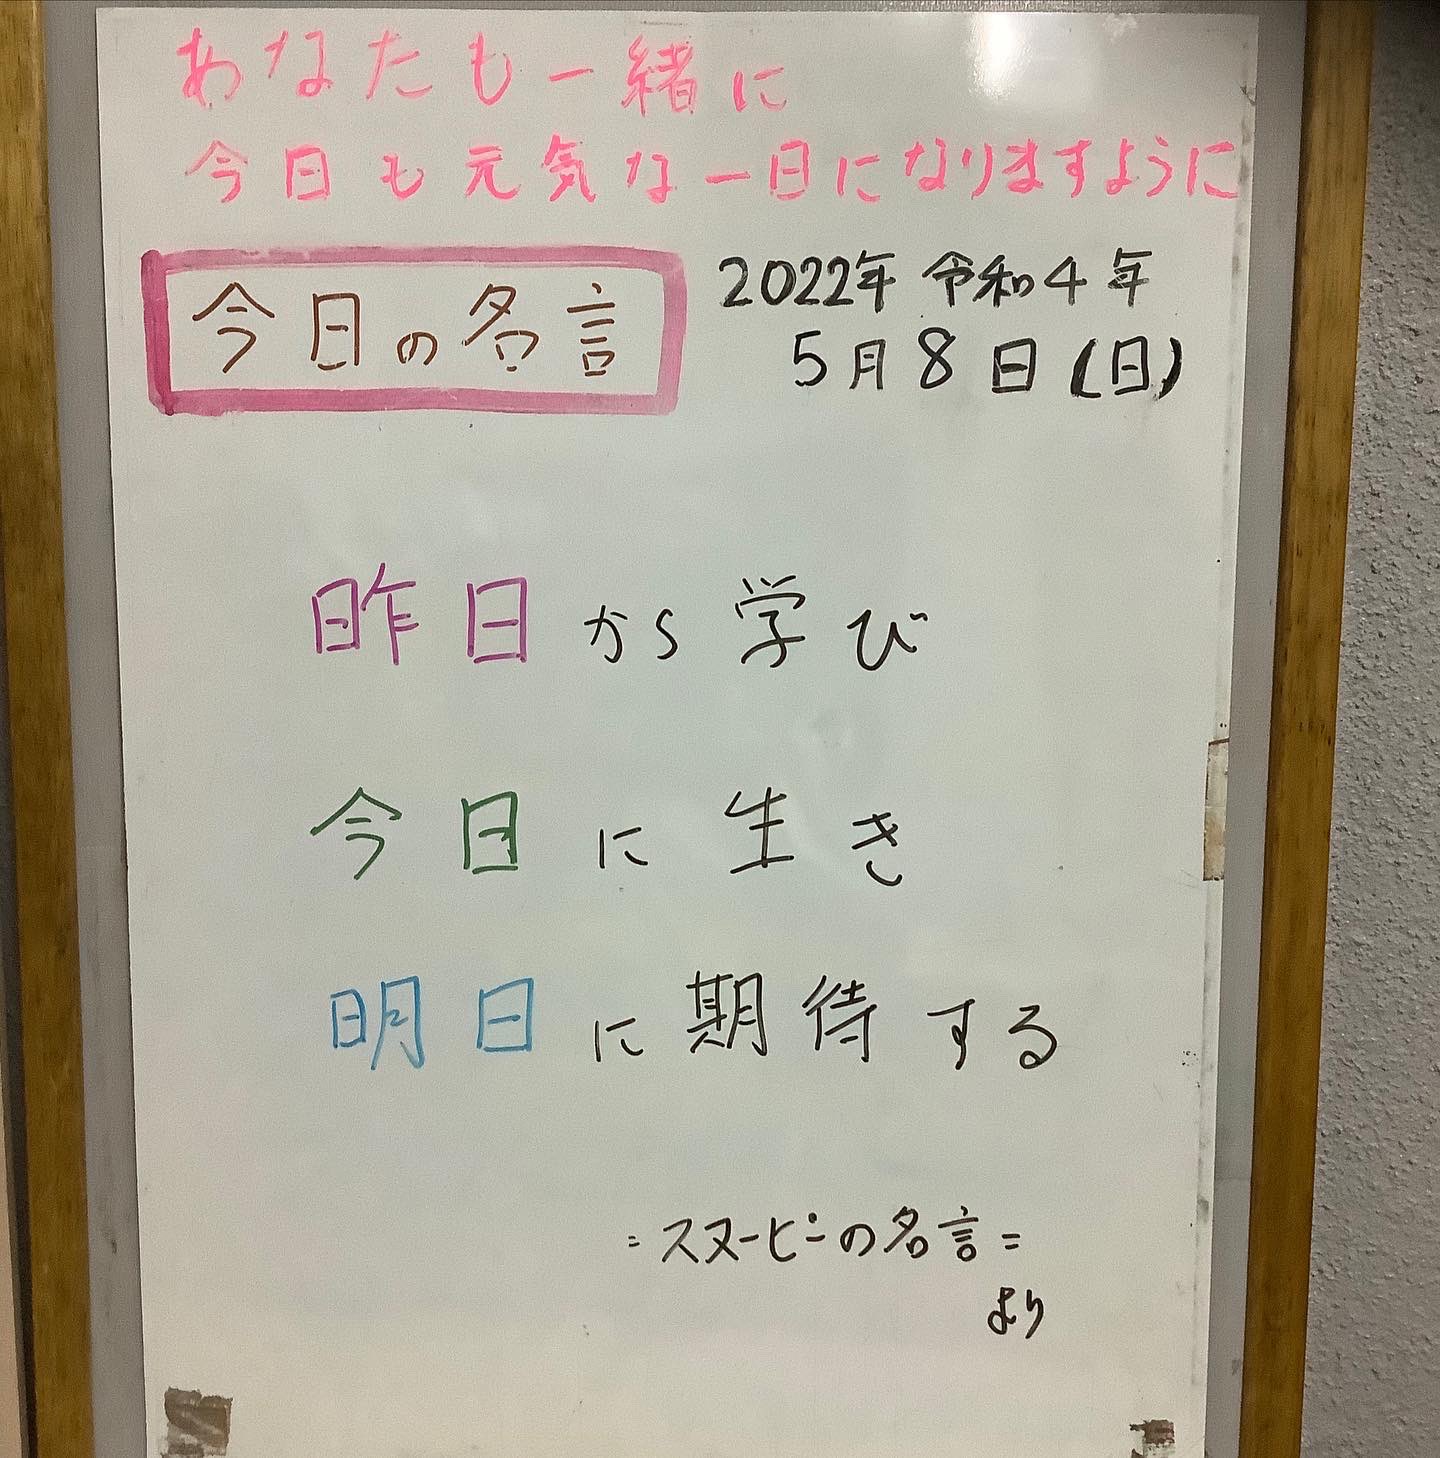 あなたも一緒に
今日も元気な一日になりますように
今日の名言
2022年 令和4年
5月8日(日)
昨日から学び
今日に生き
明日に期待する
=スヌーピーの名言=
より